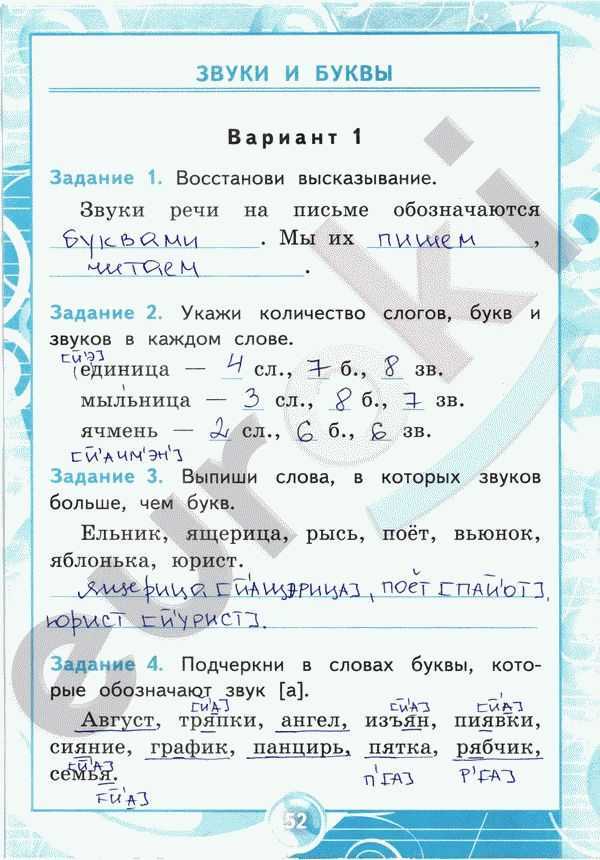 ЗВУКИ И БУКВЫ
Вариант 1
Задание 1. Восстанови высказывание.
Звуки речи на письме обозначаются
буквами. Мы их пишем,
читаем.
Задание 2. Укажи количество слогов, букв и
звуков в каждом слове.
[й'э]
единица — 4 сл., 7 б., 8 зв.
мыльница — 3 сл., 8 б., 7 зв.
ячмень — 2 сл., 6 б., 6 зв.
[й'ачм'эн']
Задание 3. Выпиши слова, в которых звуков
больше, чем букв.
Ельник, ящерица, рысь, поёт, вьюнок,
яблонька, юрист.
ящерица [й'ащэрица], поёт [пай'от],
юрист [й'урист].
Задание 4. Подчеркни в словах буквы, кото-
рые обозначают звук [а].
[й'а] [й'а] [й'а]
Август, тряпки, ангел, изъян, пиявки,
сияние, график, панцирь, пятка, рябчик,
[й'а]
семья. п'[а] р'[а]
[й'а]
52
euroki